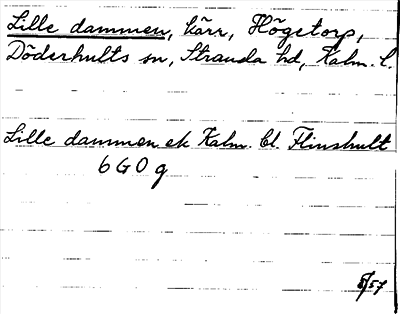 Lille dammen, kärr, Högetorp,
Döderhults sn, Stranda hd, Kalm. l.
Lille dammen ek Kalm. bl. Flinshult
6 G 0 g
8/57